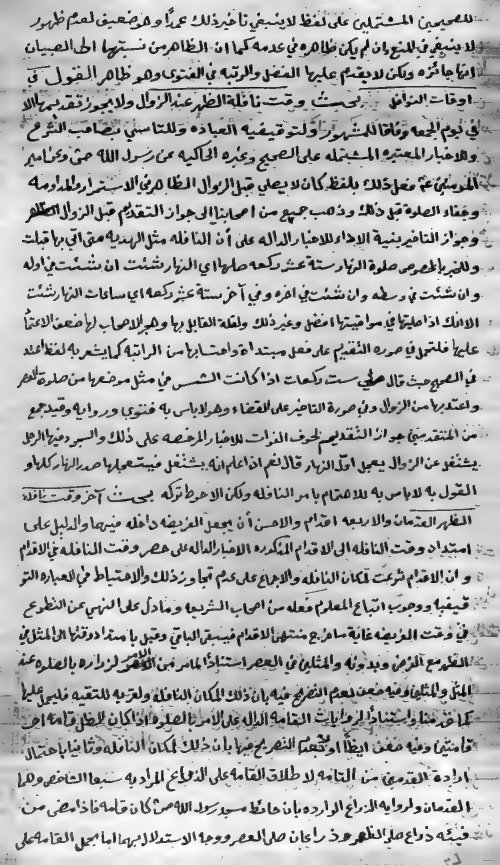 للصحيحين المشتملين على لفظ لا ينبغي تاخير ذلك عمدا وهو ضعيف لعدم ظهور
لا ينبغي في المنع وان لم يكن ظاهرا في عدمه كما ان الظاهر من نسبتها الى الصبيان
انها جائزه ولكن لا يقدم عليها الفضل والرتبه في الفتوى وهو ظاهر القول في
اوقات النوافل بحث وقت نافلة الظهر عند الزوال ولا يجوز تقديمها الا
في يوم الجمعه وفاقا للمشهور ولتوقيفيه العباده وللتاسي بصاحب الشرع
وللاخبار المعتبره المشتمله على الصحيح وغيره الحاكيه عن رسول الله ص وعن امير
المؤمنين ع فعل ذلك بلفظ كان لا يصلي قبل الزوال الظاهر في الاستمرار والمداومه
وخفاء الصلوة قبل ذلك وذهب جمع من اصحابنا الى جواز التقديم قبل الزوال
وجواز التاخير بنية الاداء للاخبار الداله على أن النافله مثل الهديه متى اتي بها قبلت
وللخبر بالخصوص صلوة النهار ستة عشر ركعه صلها اي النهار شئت ان شئت في اوله
وان شئت في وسطه وان شئت في اخره وفي آخر ستة عشر ركعه اي ساعات النهار شئت
الا انك اذا صليتها في مواقيتها افضل وغير ذلك ولقلة القايل بها وهجر الاصحاب لها ضعف الاعتماد
عليها فلتحمل في صوره التقديم على فعل مبتداة واحتسابها من الراتبة كما يشعر به لفظ اعتد
في الصحيح حيث قال صلي ست ركعات اذا كانت الشمس في مثل موضعها من صلوة العصر
واعتد بها من الزوال وفي صورة التاخير على القضاء وهو لا باس به فتوى وروايه وقيد جمع
من المتقدمين جواز التقديم بخوف الفوات للاخبار المرخصه على ذلك والسبر وفيها الرجل
يشتغل عن الزوال يعجل اول النهار قال نعم اذا علم انه يشتغل فيستعجلها صدر النهار كلها و
القول به لا باس به للاهتمام بامر النافلة ولكن الاحوط تركه بحث آخر وقت نافلة
الظهر القدمان والاربعه اقدام والاحسن أن يجعل الفريضه داخله فيهما والدليل على
امتداد وقت النافلة الى الاقدام المذكوره الاخبار الداله على حصر وقت النافله في الاقدام
و ان الاقدام شرعت لمكان النافله والاجماع على عدم تجاوز ذلك والاحتياط في العباده التو
قيفيه ووجوب اتباع المعلوم فعله من اصحاب الشريعه وما دل على النهي عن التطوع
في وقت الفريضه غاية ما خرج منتهى الاقدام فيبقى الباقي وقيل بامتداد وقتها الى المثل في
الظهر مع الفرض وبدونه والمثلين في العصر استنادا لما مر من الامر لزراره بالصلوة عند
المثل والمثلين وفيه ضعف لعدم التصريح فيه بان ذلك لمكان النافله ولقربه للتقيه فليحمل عليها
كما عرفتها واستنادا لروايات القامة الداله على الامر بالصلوة اذا كان الظل قامه او
قامتين وفيه ضعف ايضا اولا لعدم التصريح فيها بان ذلك لمكان النافله وثانيا باحتمال
اراده القدمين من القامة لاطلاق القامة على الذراع المراد به سبعا الشاخص وهما
القدمان ولروايه الذراع الوارده بان حائط مسجد رسول الله ص كان قامه فاذا مضى من
فيئه ذراع صلى الظهر وذراعان صلى العصر ووجه الاستدلال بهما اما بحمل القامه على